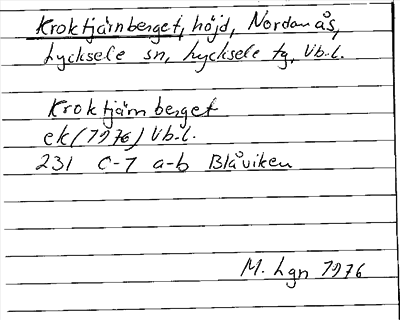 Kroktjärnberget, höjd, Nordanås,
Lycksele sn, Lycksele tg, Vb.l.
Kroktjärnberget
ek (1976) Vb.l.
231 C-7 a-b Blåviken
M. Lgn 1976